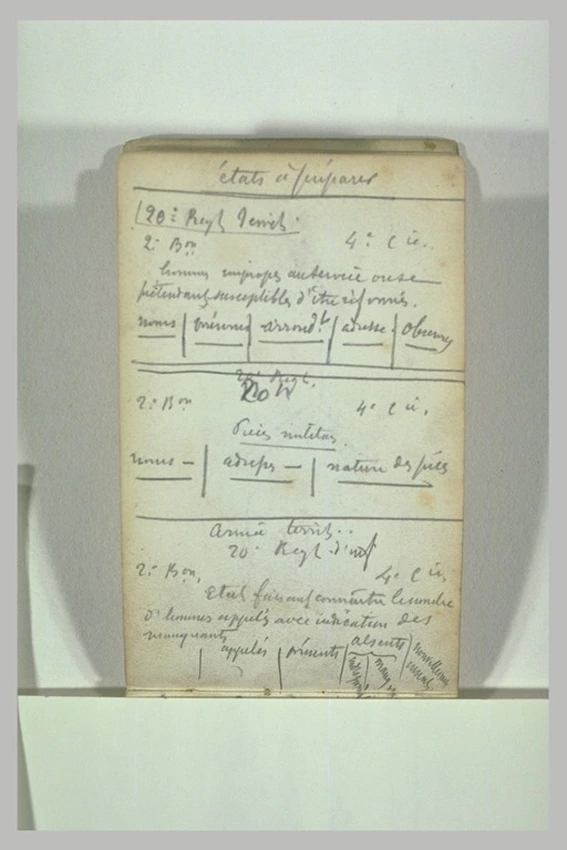 états à préparer
20e Regt Territ.
2e Bon 4e Cie.
hommes impropres au service ou se
prétendant susceptibles d'être réformés.
noms prénoms arrondt adresse observ
20e Regt.
2e Bon 4e Cie.
Pièces militaires.
noms — adresses — nature des pièces
Armée territ..
20e Regt d'inf
2e Bon, 4e Cie,
Etat faisant connaître le nombre
d'hommes appelés avec indication des
manquants
appelés présents absents